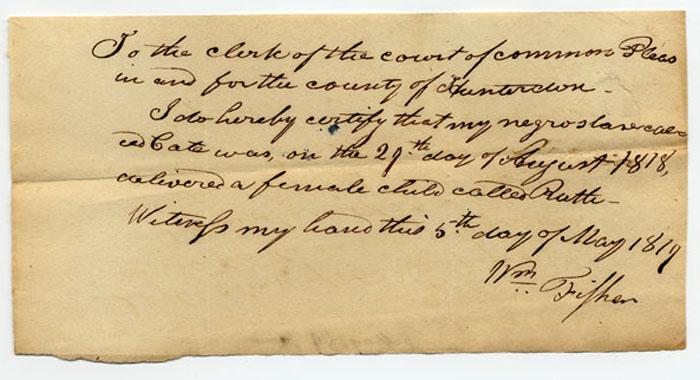 To the clerk of the court of common Pleas
in and for the county of Hunterdon -
I do hereby certify that my negro slave cal-
ed Cate was, on the 29th day of August 1818,
delivered a female child called Ruth -
Witness my hand this 5th day of May 1819
Wm Fisher